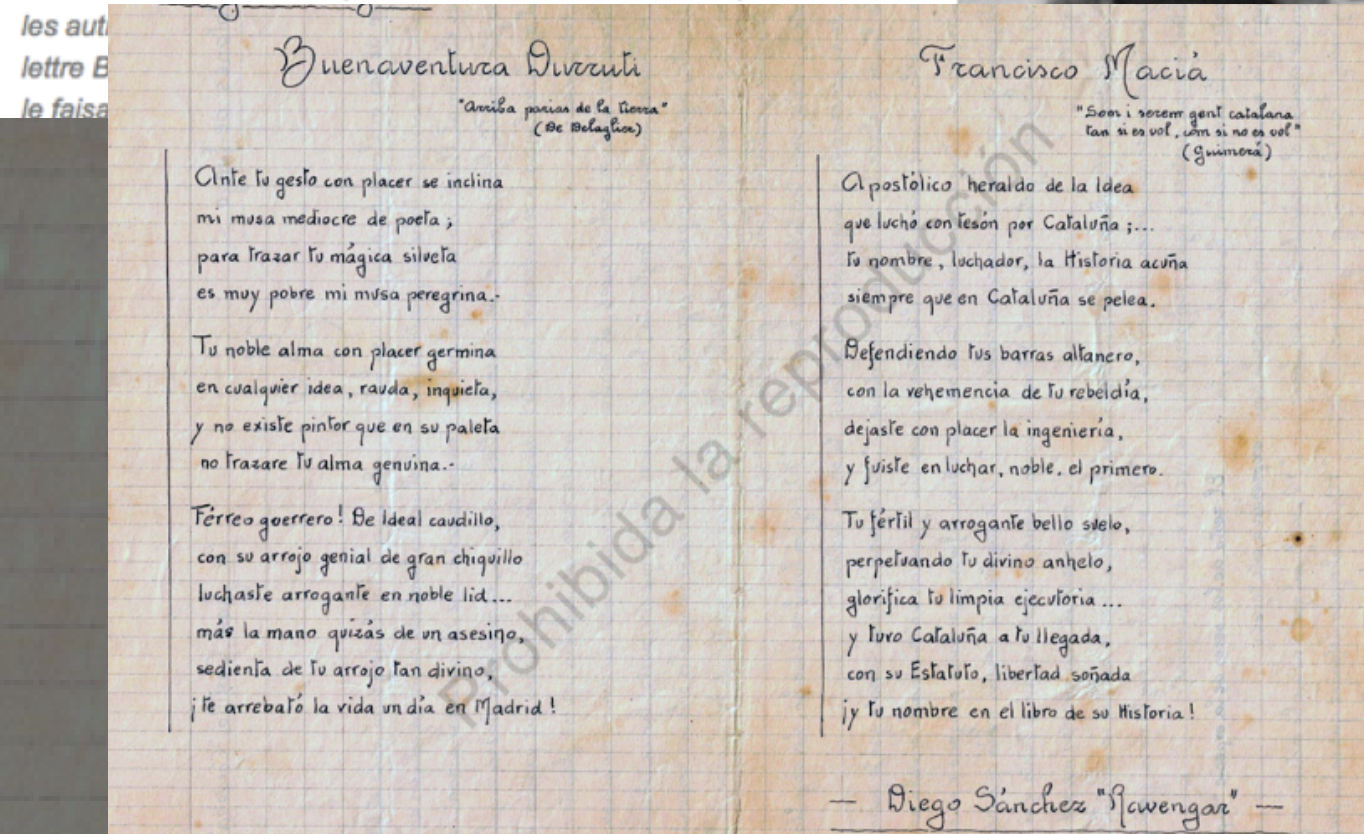 les aut
lettre B
le faisa
Buenaventura Durruti
"Arriba parias de la tierra"
(De Delaglice)
Ante tu gesto con placer se inclina
mi musa mediocre de poeta ;
para trazar tu mágica silueta
es muy pobre mi musa peregrina.-
Tu noble alma con placer germina
en cualquier idea, rauda, inquieta,
y no existe pintor que en su paleta
no trazare tu alma genuina.-
Férreo guerrero! De Ideal caudillo,
con su arrojo genial de gran chiquillo
luchaste arrogante en noble lid...
más la mano quizás de un asesino,
sedienta de tu arrojo tan divino,
¡te arrebató la vida un día en Madrid!
Francisco Maciá
"Som i serem gent catalana
tan si es vol, com si no es vol"
(Guimerá)
Apostólico heraldo de la Idea
que luchó con tesón por Cataluña ;...
tu nombre, luchador, la Historia acuña
siempre que en Cataluña se pelea.
Defendiendo tus barras altanero,
con la vehemencia de tu rebeldía,
dejaste con placer la ingeniería,
y fuiste en luchar, noble. el primero.
Tu fértil y arrogante bello suelo,
perpetuando tu divino anhelo,
glorifica tu limpia ejecutoria ...
y tuvo Cataluña a tu llegada,
con su Estatuto, libertad soñada
¡y tu nombre en el libro de su Historia!
— Diego Sánchez "Rawengar" —
Prohibida la reproducción